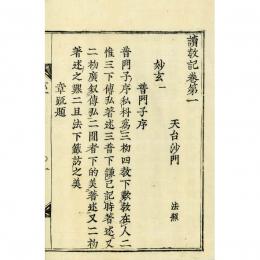 讀教記卷第一
天台沙門 法照
妙玄一
普門子序
普門子序私科爲三初四教下歎教在人二
惟三下傳弘著述三吾下謙己記時著述文
二初廣叙傳弘二聞者下的美著述又二初
著述之緊二且法下籤訪之美
章
題